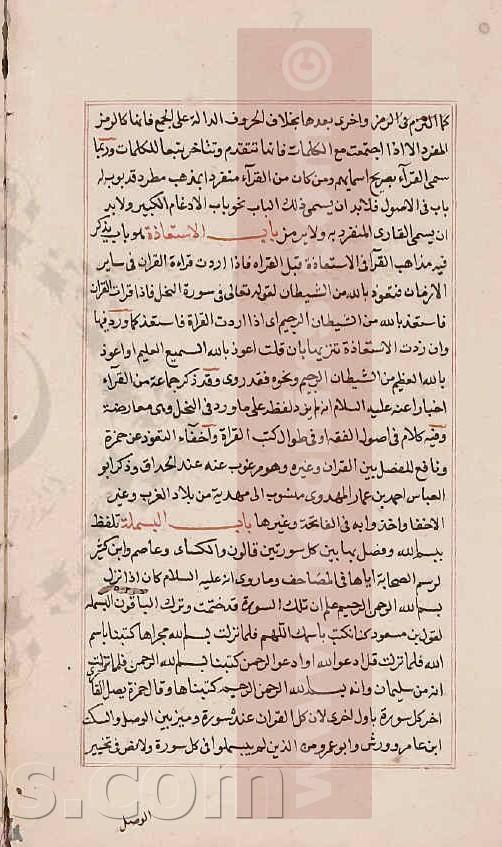 كما التزم فى الرمز واخرى بعدها بخلاف الحروف الدالة على الجمع فانها كالرمز
المفرد الا اذا اجتمعت مع الكلمات فانها تتقدم وتتاخر تبعا للكلمات وربما
سمى القرآء بصريح اسمايهم ومن كان من القرآء منفردا بمذهب مطرد قد بوب له
باب فى الاصول فلا بد ان يسمى ذلك الباب نحو باب الادغام الكبير ولا بد
ان يسمى القارى المنفرد به ولا يرمز باب الاستعاذة هو باب يذكر
فيه مذاهب القرآ فى الاستعاذة قبل القراة فاذا اردت قراءة القران فى ساير
الازمان فتعوذ بالله من الشيطان لقوله تعالى فى سورة النحل فاذا قرات القران
فاستعذ بالله من الشيطان الرجيم اى اذا اردت القراة فاستعذ كما ورد فيها
وان زدت الاستعاذة تنزيها بان قلت اعوذ بالله السميع العليم او اعوذ
بالله العظيم من الشيطان الرجيم ونحوه فقد روى وقد ذكر جماعة من القرآء
اخبارا عنه عليه السلام انه لم يزد لفظه على ما ورد فى النحل وهى معارضة
وفيه كلام فى اصول الفقه او فى طوال كتب القراة واخفآء التعوذ عن حمزة
ونافع للفصل بين القران وغيره وهو مرغوب عنه عند الحذاق وذكر ابو
العباس احمد بن عمار المهدوى منسوب الى مهدية من بلاد الغرب وغيره
الاخفا واخذوا به فى الفاتحة وغيرها باب البسملة تلفظ
ببسم الله وفصل بها بين كل سورتين قالون والكساى وعاصم وابن كثير
لرسم الصحابة اياها فى المصاحف وما روى انه عليه السلام كان اذا نزل
بسم الله الرحمن الرحيم علم ان تلك السورة قد ختمت وترك الباقون البسملة
لقول بن مسعود كنا نكتب باسمك اللهم فلما نزلت بسم الله مجراها كتبنا باسم
الله فلما نزلت قل ادعوا الله او ادعوا الرحمن كتبنا بسم الله الرحمن فلما نزلت
انه من سليمان وانه بسم الله الرحمن الرحيم كتبناها وقال حمزة يصل القا
اخر كل سورة باول اخرى لان كل القران عنده سورة وميز بين الوصل والسكت
ابن عامر وورش وابو عمرو من الذين لم يبسملوا فى كل سورة ولا نص فى تخيير
الوصل